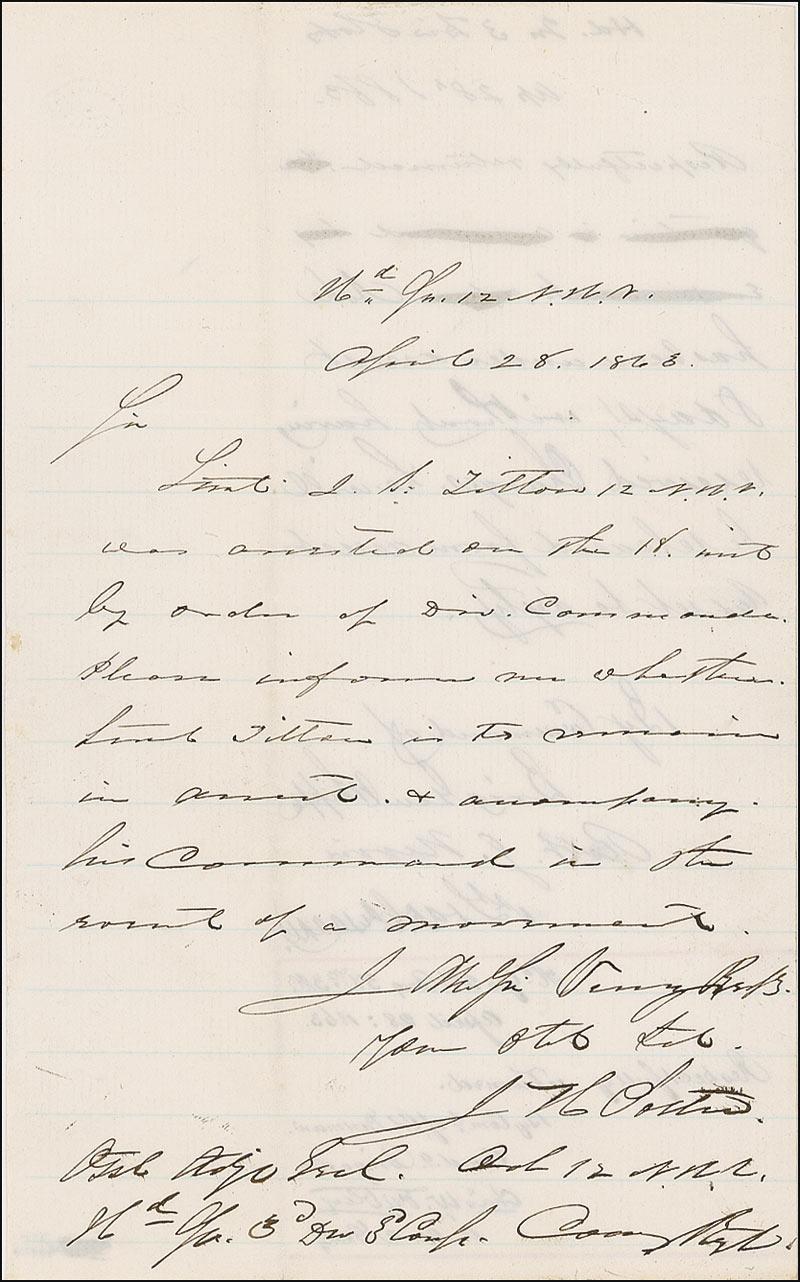 Hd Qr. 12 N.H.V.
April 28. 1863.
Sir
Lieut. J. S. Tilton 12 N.H.V.
was arrested on the 18. inst
by order of Div. Commander.
Please inform me whether
Lieut Tilton is to remain
in arrest. & accompany
his Command in the
event of a movement.
I Am Sir Very Resp.
Your Obt Svt.
J H Potter.
Asst Adjt Genl. Col 12 N.H.V.
Hd Qr. 3d Div 3d Corps. Comg Regt.